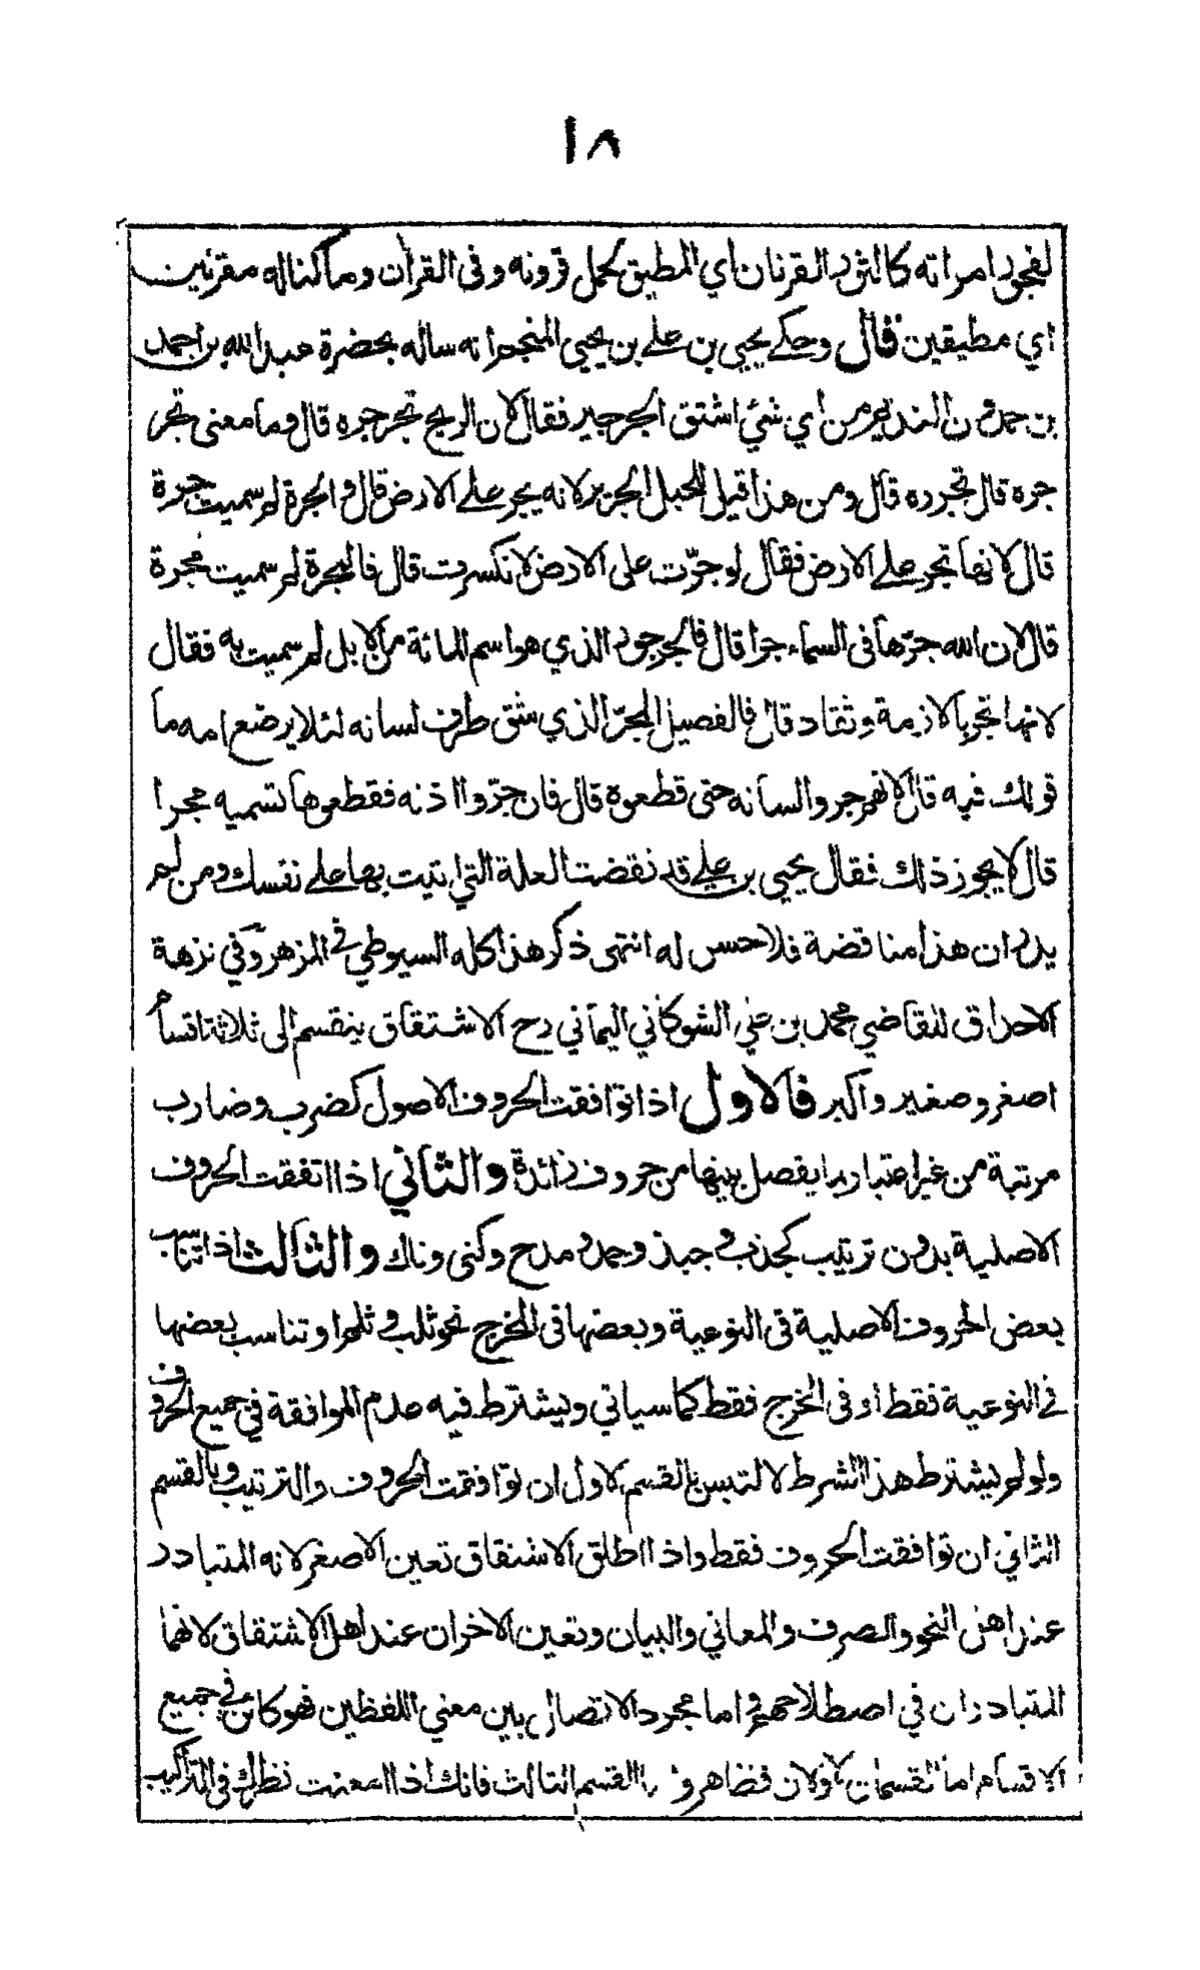 ١٨
لفجور امراته كالثور القرنان اي المطيق لحمل قرونه وفى القرأن وما كنا له مقرنين
اي مطيقين قال وحكے يحيى بن علے بن يحيى المنجم انه ساله بحضرة عبد الله بن احمد
بن حمدون النديم من اي شئ اشتق الجرجير فقال لان الريح تجرجره قال وما معنى تجر
جره قال تجرده قال ومن هذا قيل للحبل الجرير لانه يجر علے الارض قال والجرة لم سميت جرة
قال لانها تجر علے الارض فقال لو جرّت على الارض لانكسرت قال فالمجرة لم سميت مجرة
قال لان الله جرّها فى السماء جرا قال فالجرجور الذي هو اسم المائة من الابل لم سميت به فقال
لانها تجر بالازمة وتقاد قال فالفصيل المجرّ الذي شق طرف لسانه لئلا يرضع امه ما
قولك فيه قال لانهم جروا لسانه حتى قطعوه قال فان جرّوا اذنه فقطعوها تسميه مجرا
قال لا يجوز ذلك فقال يحيى بن علے قد نقضت العلة التى اتيت بها علے نفسك ومن لم
يدر ان هذا مناقضة فلا حس له انتهى ذكر هذا كله السيوطي فے المزهر وفي نزهة
الاحداق للقاضي محمد بن علي الشوكاني اليماني رح الاشتقاق ينقسم الى ثلاثة اقسام
اصغر وصغير واكبر فالاول اذا توافقت الحروف الاصول كضرب وضارب
مرتبة من غير اعتبار بما يفصل بينها من حروف زائدة والثاني اذا اتفقت الحروف
الاصلية بدون ترتيب كجذب و جبذ وحمد و مدح وكنى وناك والثالث اذا تناسب
بعض الحروف الاصلية فى النوعية وبعضها فى المخرج نحو ثلب و ثلم او تناسب بعضها
فے النوعية فقط او فى المخرج فقط كما سياتي ويشترط فيه عدم الموافقة في جميع الحروف
ولو لم يشترط هذا الشرط لا لتبس بالقسم الاول ان توافقت الحروف والترتيب وبالقسم
الثاني ان توافقت الحروف فقط واذا اطلق الاشتقاق تعين الاصغر لانه المتبادر
عند اهل النحو والصرف والمعاني والبيان وتعين الاخران عند اهل الاشتقاق لانهما
المتبادران في اصطلاحهم و اما مجرد الاتصال بين معني اللفظين فهو كائن فے جميع
الاقسام اما القسمان الاولان فظاهر و اما القسم الثالث فانك اذا امعنت نظرك فى التراكيب